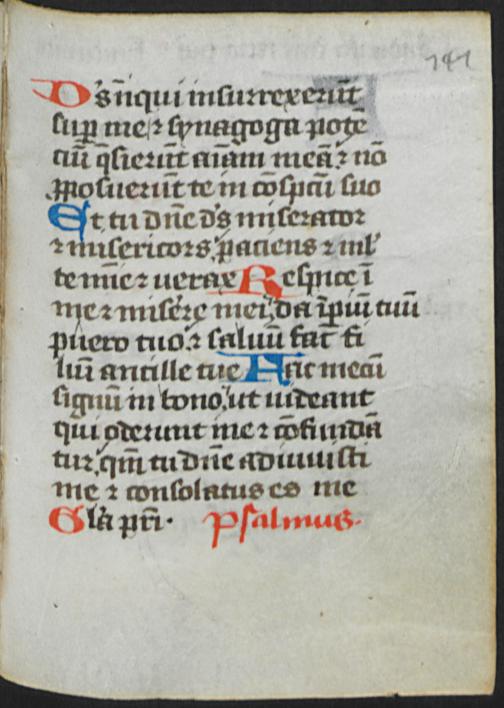 141
Ds iniqui insurrexerūt
sup̄ me ⁊ synagoga potē
ciū q̄sierūt aīam meā ⁊ nō
ꝓposuerūt te in cōspcū suo
Et tu dn̄e ds miserator
⁊ misericors paciens ⁊ ml̄
te mīe ⁊ uerax Respice ī
me ⁊ misēre mei da īpiū tuū
puero tuo ⁊ saluū fac fi
liū ancille tue Fac mecū
signū in bono ut uideant
qui oderunt me ⁊ cōfundā
tur qm̄ tu dn̄e adiuuisti
me ⁊ consolatus es me
Gla pr̄i. Psalmus.